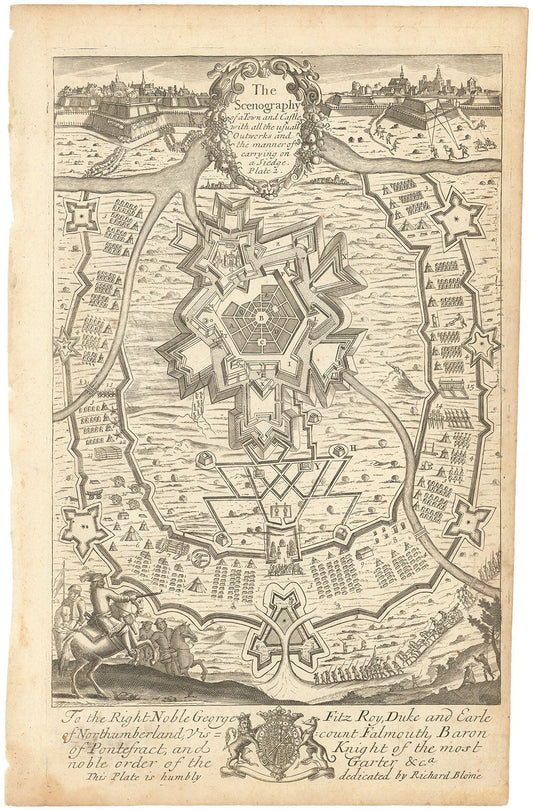 The
Scenography
of a Town and Castle
with all the usuall
Outworks and
the manner of
carrying on
a Siedge.
Plate 2.
B
C
H
Y
15
To the Right Noble George Fitz Roy, Duke and Earle
of Northumberland, Vis= count Falmouth, Baron
of Pontefract, and Knight of the most
noble order of the Garter &c.a
This Plate is humbly dedicated by Richard Blome